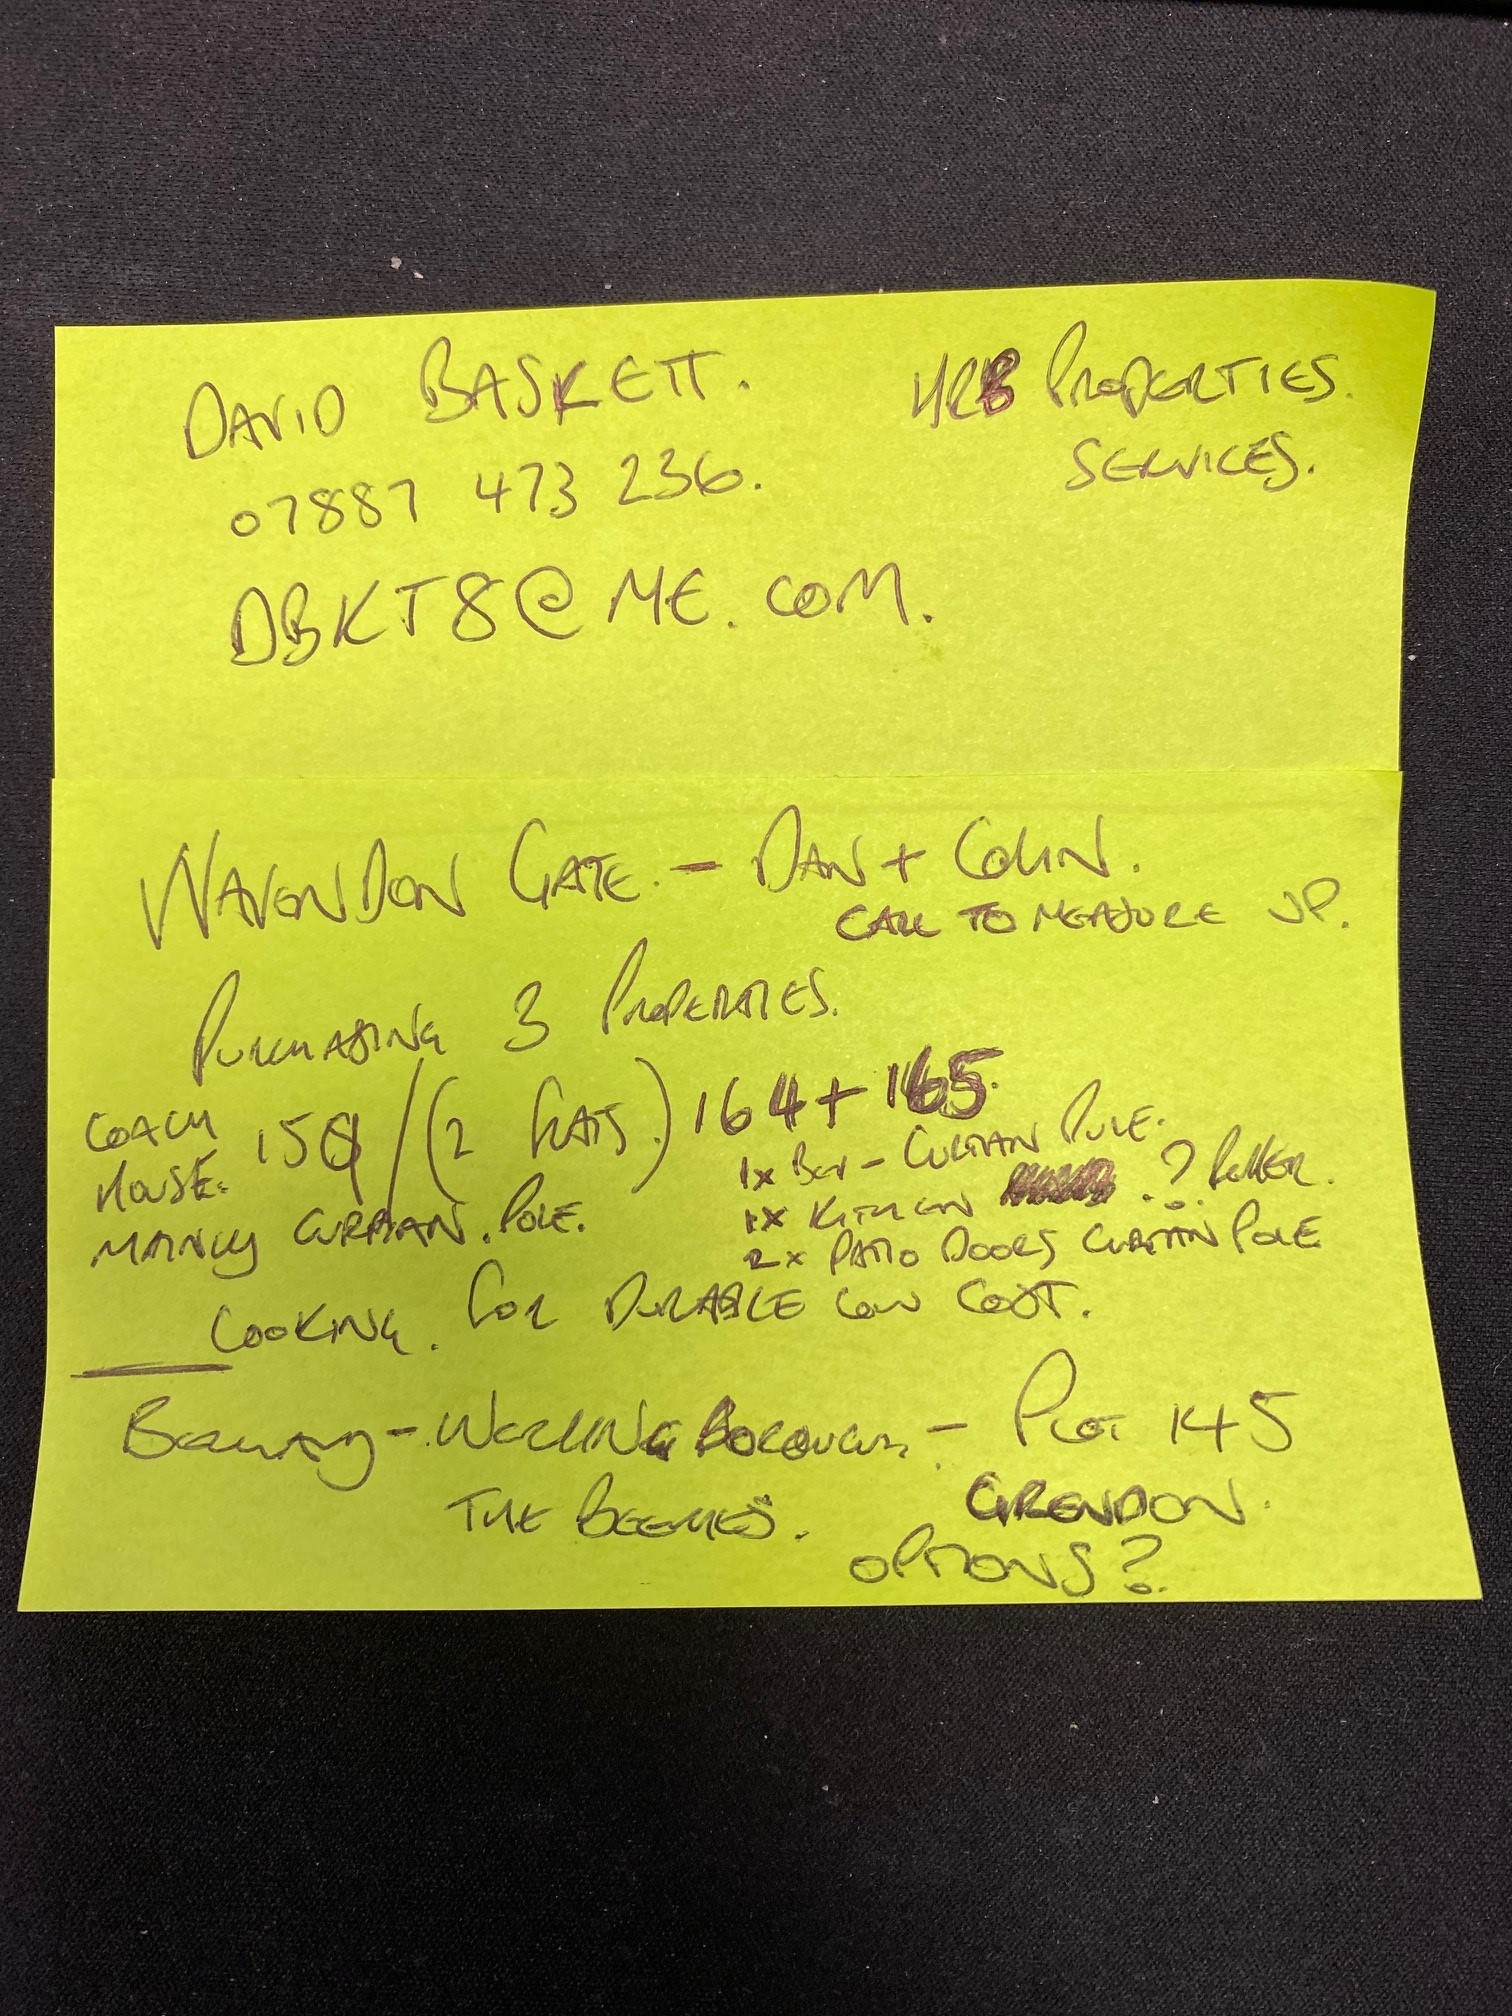 DAVID BASKETT.
HRB PROPERTIES.
SERVICES.
07887 473 236.
DBKT8@ME.COM.
WAVONDON GATE. - DAN + COLIN.
CALL TO MEASURE UP.
PURCHASING 3 PROPERTIES.
COACH HOUSE. 159 / (2 FLATS.) 164 + 165.
MAINLY CURTAIN. POLE.
1x BED - CURTAIN POLE.
1x KITCHEN .? ROLLER.
2x PATIO DOORS CURTAIN POLE
LOOKING. FOR DURABLE LOW COST.
BELLWAY - WELLINGBOROUGH - PLOT 145
THE BEECHES. GRENDON.
OPTIONS?